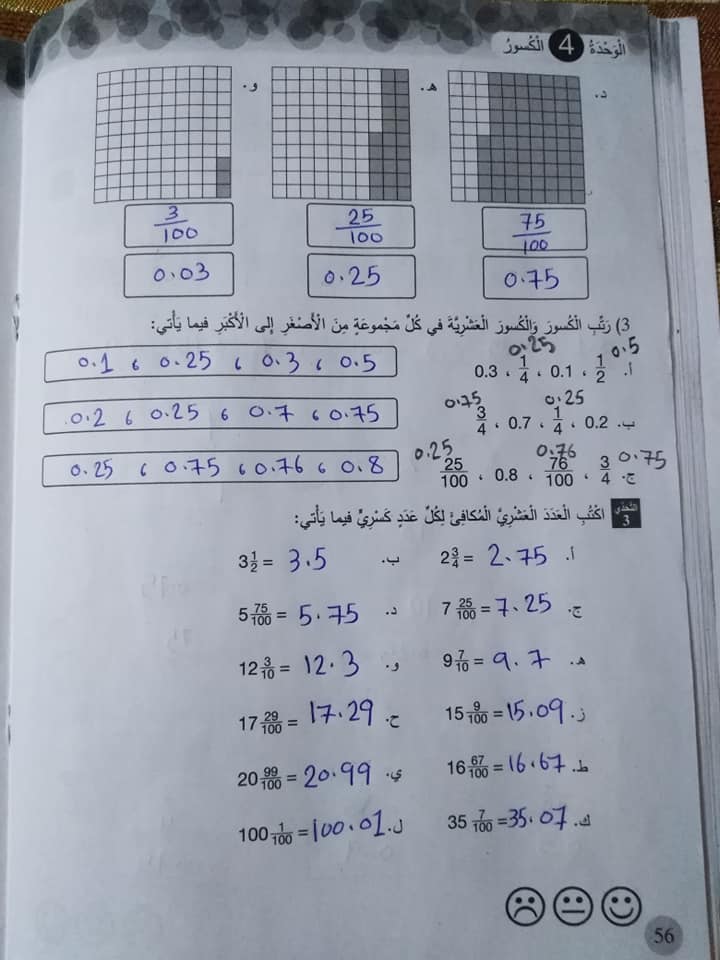 الْوَحْدَةُ 4 الْكُسورُ
د. هـ. و.
75/100 25/100 3/100
0.75 0.25 0.03
3) رَتِّبِ الْكُسورَ وَالْكُسورَ الْعَشْرِيَّةَ في كُلِّ مَجْموعَةٍ مِنَ الْأَصْغَرِ إلى الْأَكْبَرِ فيما يَأْتي:
0.5 0.25
أ. 1/2 ، 0.1 ، 1/4 ، 0.3
0.1 ، 0.25 ، 0.3 ، 0.5
0.25 0.75
ب. 0.2 ، 1/4 ، 0.7 ، 3/4
0.2 ، 0.25 ، 0.7 ، 0.75
0.75 0.76 0.25
ج. 3/4 ، 76/100 ، 0.8 ، 25/100
0.25 ، 0.75 ، 0.76 ، 0.8
التَّحَدّي 3 اكْتُبِ الْعَدَدَ الْعَشْرِيَّ الْمُكافِئَ لِكُلِّ عَدَدٍ كَسْرِيٍّ فيما يَأْتي:
أ. 2 3/4 = 2.75 ب. 3 1/2 = 3.5
ج. 7 25/100 = 7.25 د. 5 75/100 = 5.75
هـ. 9 7/10 = 9.7 و. 12 3/10 = 12.3
ز. 15 9/100 = 15.09 ح. 17 29/100 = 17.29
ط. 16 67/100 = 16.67 ي. 20 99/100 = 20.99
ك. 35 7/100 = 35.07 ل. 100 1/100 = 100.01
56